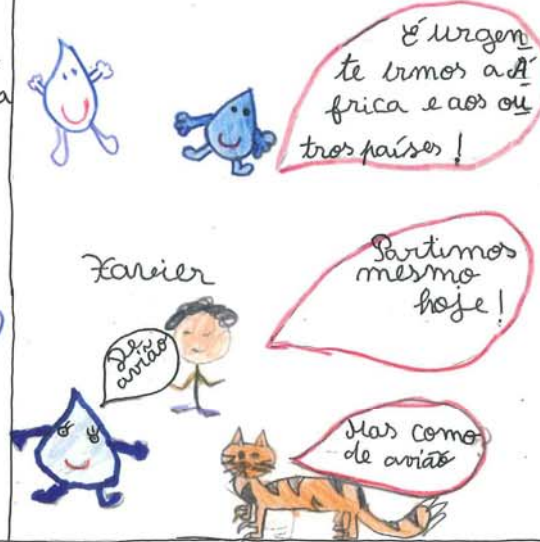 a
É urgen
te irmos a Á
frica e aos ou
tros países!
Xavier
Partimos
mesmo
hoje!
De
avião
Mas como
de avião